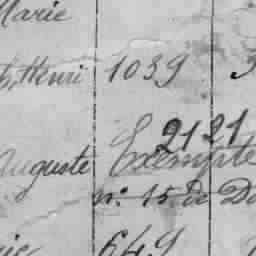 Marie
Henri 1039
2121
Auguste Exempte
n: 15 de
649